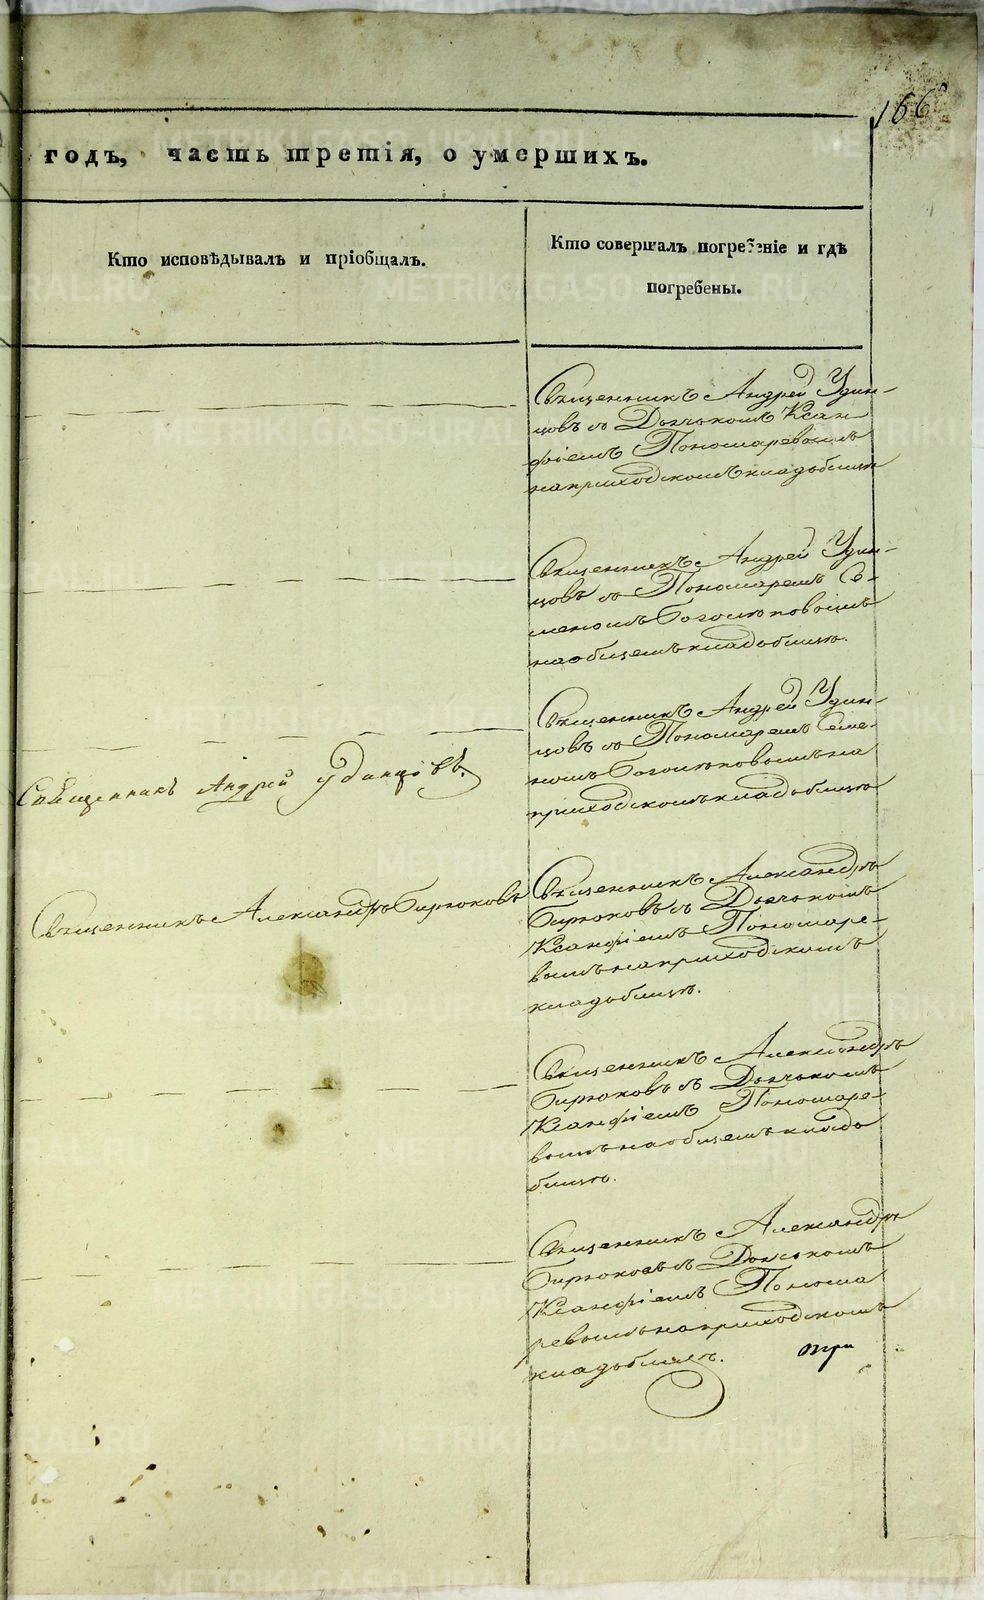 166
годъ, часть третія, о умершихъ.
Кто исповѣдывалъ и пріобщалъ.
Кто совершалъ погребеніе и гдѣ
погребены.
Священникъ Андрей Удин-
цовъ съ Дьячькомъ Ксан
фіемъ Пономаревымъ
на приходскомъ кладбищѣ
Священникъ Андрей Удин-
цовъ съ Пономаремъ Се-
меномъ Боголѣповымъ
на общемъ кладбищѣ.
Священникъ Андрей Удин-
цовъ съ Пономаремъ Семе-
номъ Боголѣповымъ на
приходскомъ кладбищѣ
Священникъ Андрей Удинцовъ.
Священникъ Александръ Бирюковъ
Священникъ Александръ
Бирюковъ съ Дьячькомъ
Ксанфіемъ Пономаре-
вымъ на приходскомъ
кладбищѣ.
Священникъ Александръ
Бирюковъ съ Дьячькомъ
Ксанфіемъ Пономаре-
вымъ на общемъ кладб
бищѣ.
Священникъ Александръ
Бирюковъ съ Дьячькомъ
Ксанфіемъ Понома
ревымъ на приходскомъ
кладбищѣ.
при
METRIKI.GASO-URAL.RU